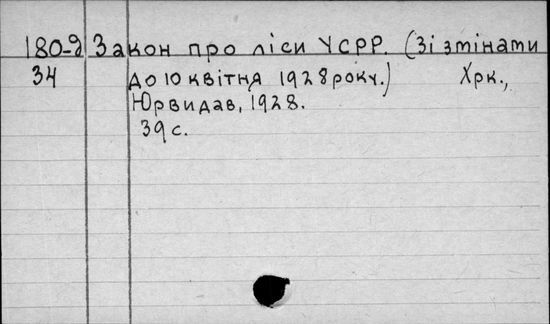 180-д Закон про ліси УСРР. (Зі змінами
34 до 10 квітня 1928 року.) Хрк.,
Юрвидав, 1928.
39 с.